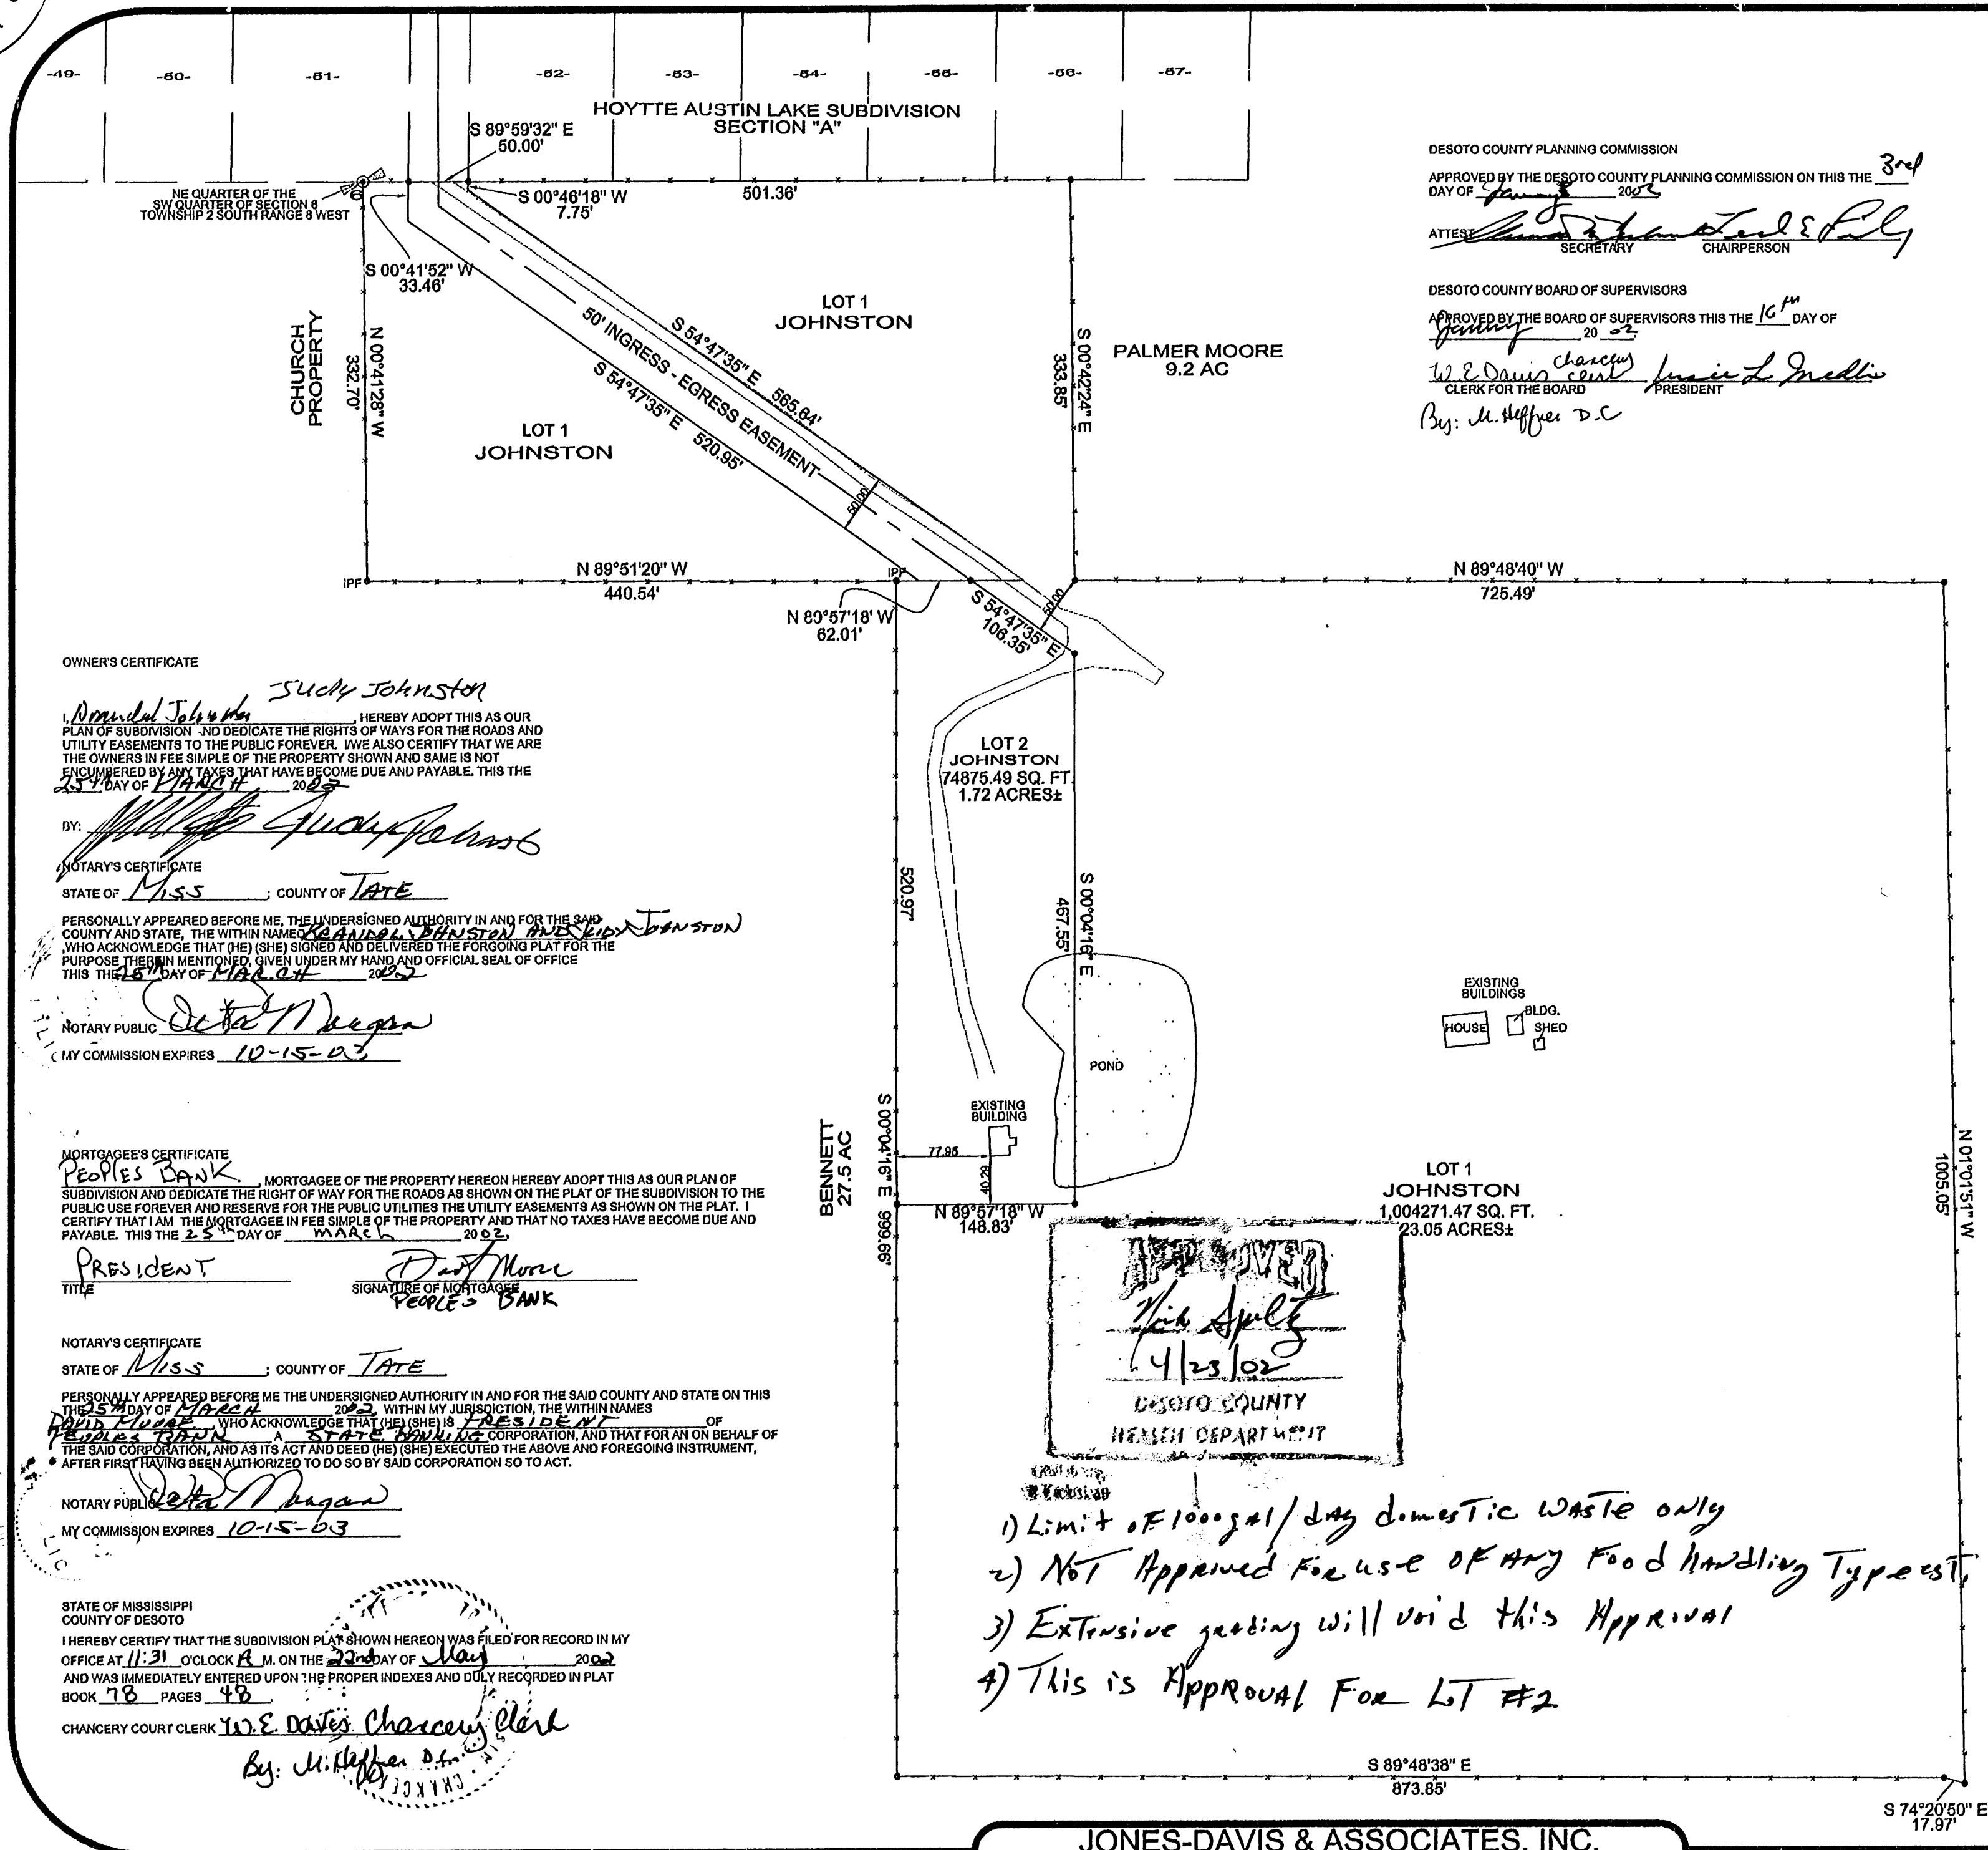 -49-
-50-
-51-
-52-
-53-
-54-
-55-
-56-
-57-
HOYTTE AUSTIN LAKE SUBDIVISION
SECTION "A"
S 89°59'32" E
50.00'
NE QUARTER OF THE
SW QUARTER OF SECTION 6
TOWNSHIP 2 SOUTH RANGE 8 WEST
S 00°46'18" W
7.75'
501.36'
S 00°41'52" W
33.46'
CHURCH
PROPERTY
N 00°41'28" W
332.70'
50' INGRESS - EGRESS EASEMENT
S 54°47'35" E 565.64'
S 54°47'35" E 520.95'
50.00
LOT 1
JOHNSTON
LOT 1
JOHNSTON
S 00°42'24" E
333.85'
PALMER MOORE
9.2 AC
IPF
N 89°51'20" W
440.54'
IPF
N 89°57'18' W
62.01'
S 54°47'35" E
106.35'
50.00
N 89°48'40" W
725.49'
DESOTO COUNTY PLANNING COMMISSION
APPROVED BY THE DESOTO COUNTY PLANNING COMMISSION ON THIS THE 3rd
DAY OF January 2002
ATTEST
SECRETARY CHAIRPERSON
DESOTO COUNTY BOARD OF SUPERVISORS
APPROVED BY THE BOARD OF SUPERVISORS THIS THE 16th DAY OF
January 20 02
W.E. Davis Chancery Clerk
CLERK FOR THE BOARD PRESIDENT
By: M. Heffner D.C
OWNER'S CERTIFICATE
Judy Johnston
I, Johnston, HEREBY ADOPT THIS AS OUR
PLAN OF SUBDIVISION AND DEDICATE THE RIGHTS OF WAYS FOR THE ROADS AND
UTILITY EASEMENTS TO THE PUBLIC FOREVER. I/WE ALSO CERTIFY THAT WE ARE
THE OWNERS IN FEE SIMPLE OF THE PROPERTY SHOWN AND SAME IS NOT
ENCUMBERED BY ANY TAXES THAT HAVE BECOME DUE AND PAYABLE. THIS THE
25th DAY OF MARCH 2002
BY: Judy Johnston
NOTARY'S CERTIFICATE
STATE OF Miss ; COUNTY OF TATE
PERSONALLY APPEARED BEFORE ME, THE UNDERSIGNED AUTHORITY IN AND FOR THE SAID
COUNTY AND STATE, THE WITHIN NAMED JOHNSTON AND JUDY JOHNSTON
,WHO ACKNOWLEDGE THAT (HE) (SHE) SIGNED AND DELIVERED THE FORGOING PLAT FOR THE
PURPOSE THEREIN MENTIONED, GIVEN UNDER MY HAND AND OFFICIAL SEAL OF OFFICE
THIS THE 25th DAY OF MARCH 2002
NOTARY PUBLIC
MY COMMISSION EXPIRES 10-15-03
MORTGAGEE'S CERTIFICATE
PEOPLES BANK, MORTGAGEE OF THE PROPERTY HEREON HEREBY ADOPT THIS AS OUR PLAN OF
SUBDIVISION AND DEDICATE THE RIGHT OF WAY FOR THE ROADS AS SHOWN ON THE PLAT OF THE SUBDIVISION TO THE
PUBLIC USE FOREVER AND RESERVE FOR THE PUBLIC UTILITIES THE UTILITY EASEMENTS AS SHOWN ON THE PLAT. I
CERTIFY THAT I AM THE MORTGAGEE IN FEE SIMPLE OF THE PROPERTY AND THAT NO TAXES HAVE BECOME DUE AND
PAYABLE. THIS THE 25th DAY OF MARCH 2002.
PRESIDENT
TITLE
SIGNATURE OF MORTGAGEE
PEOPLES BANK
NOTARY'S CERTIFICATE
STATE OF Miss ; COUNTY OF TATE
PERSONALLY APPEARED BEFORE ME THE UNDERSIGNED AUTHORITY IN AND FOR THE SAID COUNTY AND STATE ON THIS
THE 25th DAY OF MARCH 2002, WITHIN MY JURISDICTION, THE WITHIN NAMES
DAVID MOORE, WHO ACKNOWLEDGE THAT (HE) (SHE) IS PRESIDENT OF
PEOPLES BANK A STATE BANKING CORPORATION, AND THAT FOR AN ON BEHALF OF
THE SAID CORPORATION, AND AS ITS ACT AND DEED (HE) (SHE) EXECUTED THE ABOVE AND FOREGOING INSTRUMENT,
AFTER FIRST HAVING BEEN AUTHORIZED TO DO SO BY SAID CORPORATION SO TO ACT.
NOTARY PUBLIC
MY COMMISSION EXPIRES 10-15-03
STATE OF MISSISSIPPI
COUNTY OF DESOTO
I HEREBY CERTIFY THAT THE SUBDIVISION PLAT SHOWN HEREON WAS FILED FOR RECORD IN MY
OFFICE AT 11:31 O'CLOCK A M. ON THE 22nd DAY OF May 2002
AND WAS IMMEDIATELY ENTERED UPON THE PROPER INDEXES AND DULY RECORDED IN PLAT
BOOK 78 PAGES 48.
CHANCERY COURT CLERK W.E. Davis Chancery Clerk
By: M. Heffner D.C.
LOT 2
JOHNSTON
74875.49 SQ. FT.
1.72 ACRES±
520.97'
S 00°04'16" E
467.55'
POND
EXISTING
BUILDINGS
HOUSE
BLDG.
SHED
EXISTING
BUILDING
77.95
40.29
BENNETT
27.5 AC
S 00°04'16" E 999.66'
N 89°57'18" W
148.83'
LOT 1
JOHNSTON
1,004271.47 SQ. FT.
23.05 ACRES±
N 01°01'51" W
1005.05'
APPROVED
4/23/02
DESOTO COUNTY
HEALTH DEPARTMENT
1) Limit of 1000 gal/day domestic waste only
2) Not Approved For use of Any Food handling Type est.
3) Extensive grading will void this Approval
4) This is Approval For LT #2
S 89°48'38" E
873.85'
S 74°20'50" E
17.97'
JONES-DAVIS & ASSOCIATES, INC.